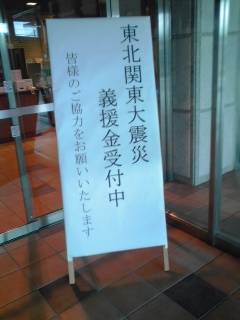 東北関東大震災
義援金受付中
皆様のご協力をお願いいたします